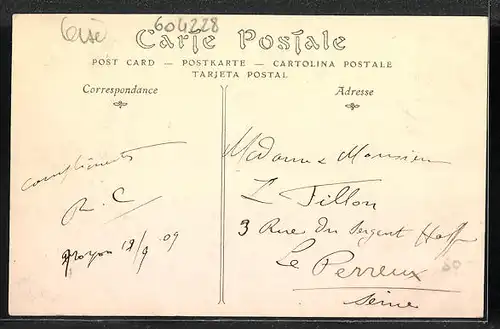 604228
Carte Postale
POST CARD — POSTKARTE — CARTOLINA POSTALE
TARJETA POSTAL
Correspondance
Adresse
compliments
R. C
Noyon 12/9 09
Madame & Monsieur
L Tillon
3 Rue du Sergent Hoff
Le Perreux
Seine